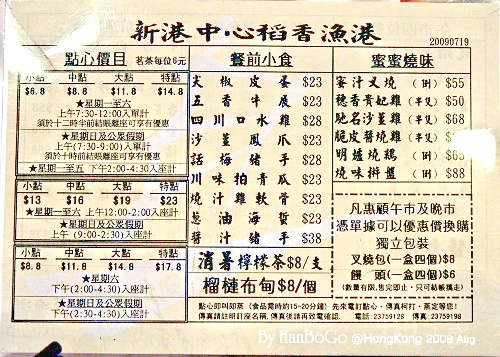 新港中心稻香漁港
20090719
點心價目 茗茶每位6元
小點 中點 大點 特點
$6.8 $8.8 $11.8 $14.8
★星期一至六
上午7:30-12:00入單計
須於十二時前結賬離座可享有優惠
★星期日及公眾假期
上午(7:30-9:00)入單計
須於十時前結賬離座可享有優惠
★星期一至五 下午2:00-4:30入座計
小點 中點 大點 特點
$13 $16 $19 $23
★星期一至六 上午12:00-2:00入座計
★星期日及公眾假期
上午(9:00-2:30)入座計
小點 中點 大點 特點
$8.8 $11.8 $14.8 $17.8
★星期六
下午(2:00-4:30)入座計
★星期日及公眾假期
下午(2:30-4:30)入座計
餐前小食
尖椒皮蛋 $23
五香牛展 $23
四川口水雞 $28
沙薑鳳爪 $23
話梅豬手 $28
川味拍青瓜 $23
燒汁雞軟骨 $23
蔥油海蜇 $23
醬汁豬手 $38
消暑檸檬茶$8/支
榴槤布甸$8/個
蜜蜜燒味
蜜汁叉燒 (例) $55
穗香貴妃雞 (半隻) $50
馳名沙薑雞 (半隻) $68
脆皮醬燒雞 (半隻)
明爐燒鵝 (例)
燒味拼盤 (例) $88
凡惠顧午市及晚市
憑單據可以優惠價換購
獨立包裝
叉燒包(一盒四個)$8
饅頭(一盒四個)$6
(數量有限,售完即止,只可結帳攜走)
點心即叫即蒸 (食品需時約15-20分鐘) 先來電訂點心、傳真柯打、蒸定等您!
傳真請註明訂座名稱,傳真後請再致電確認. 電話:23759128 傳真:23759198
By HanBoGo @HongKong 2009 Aug